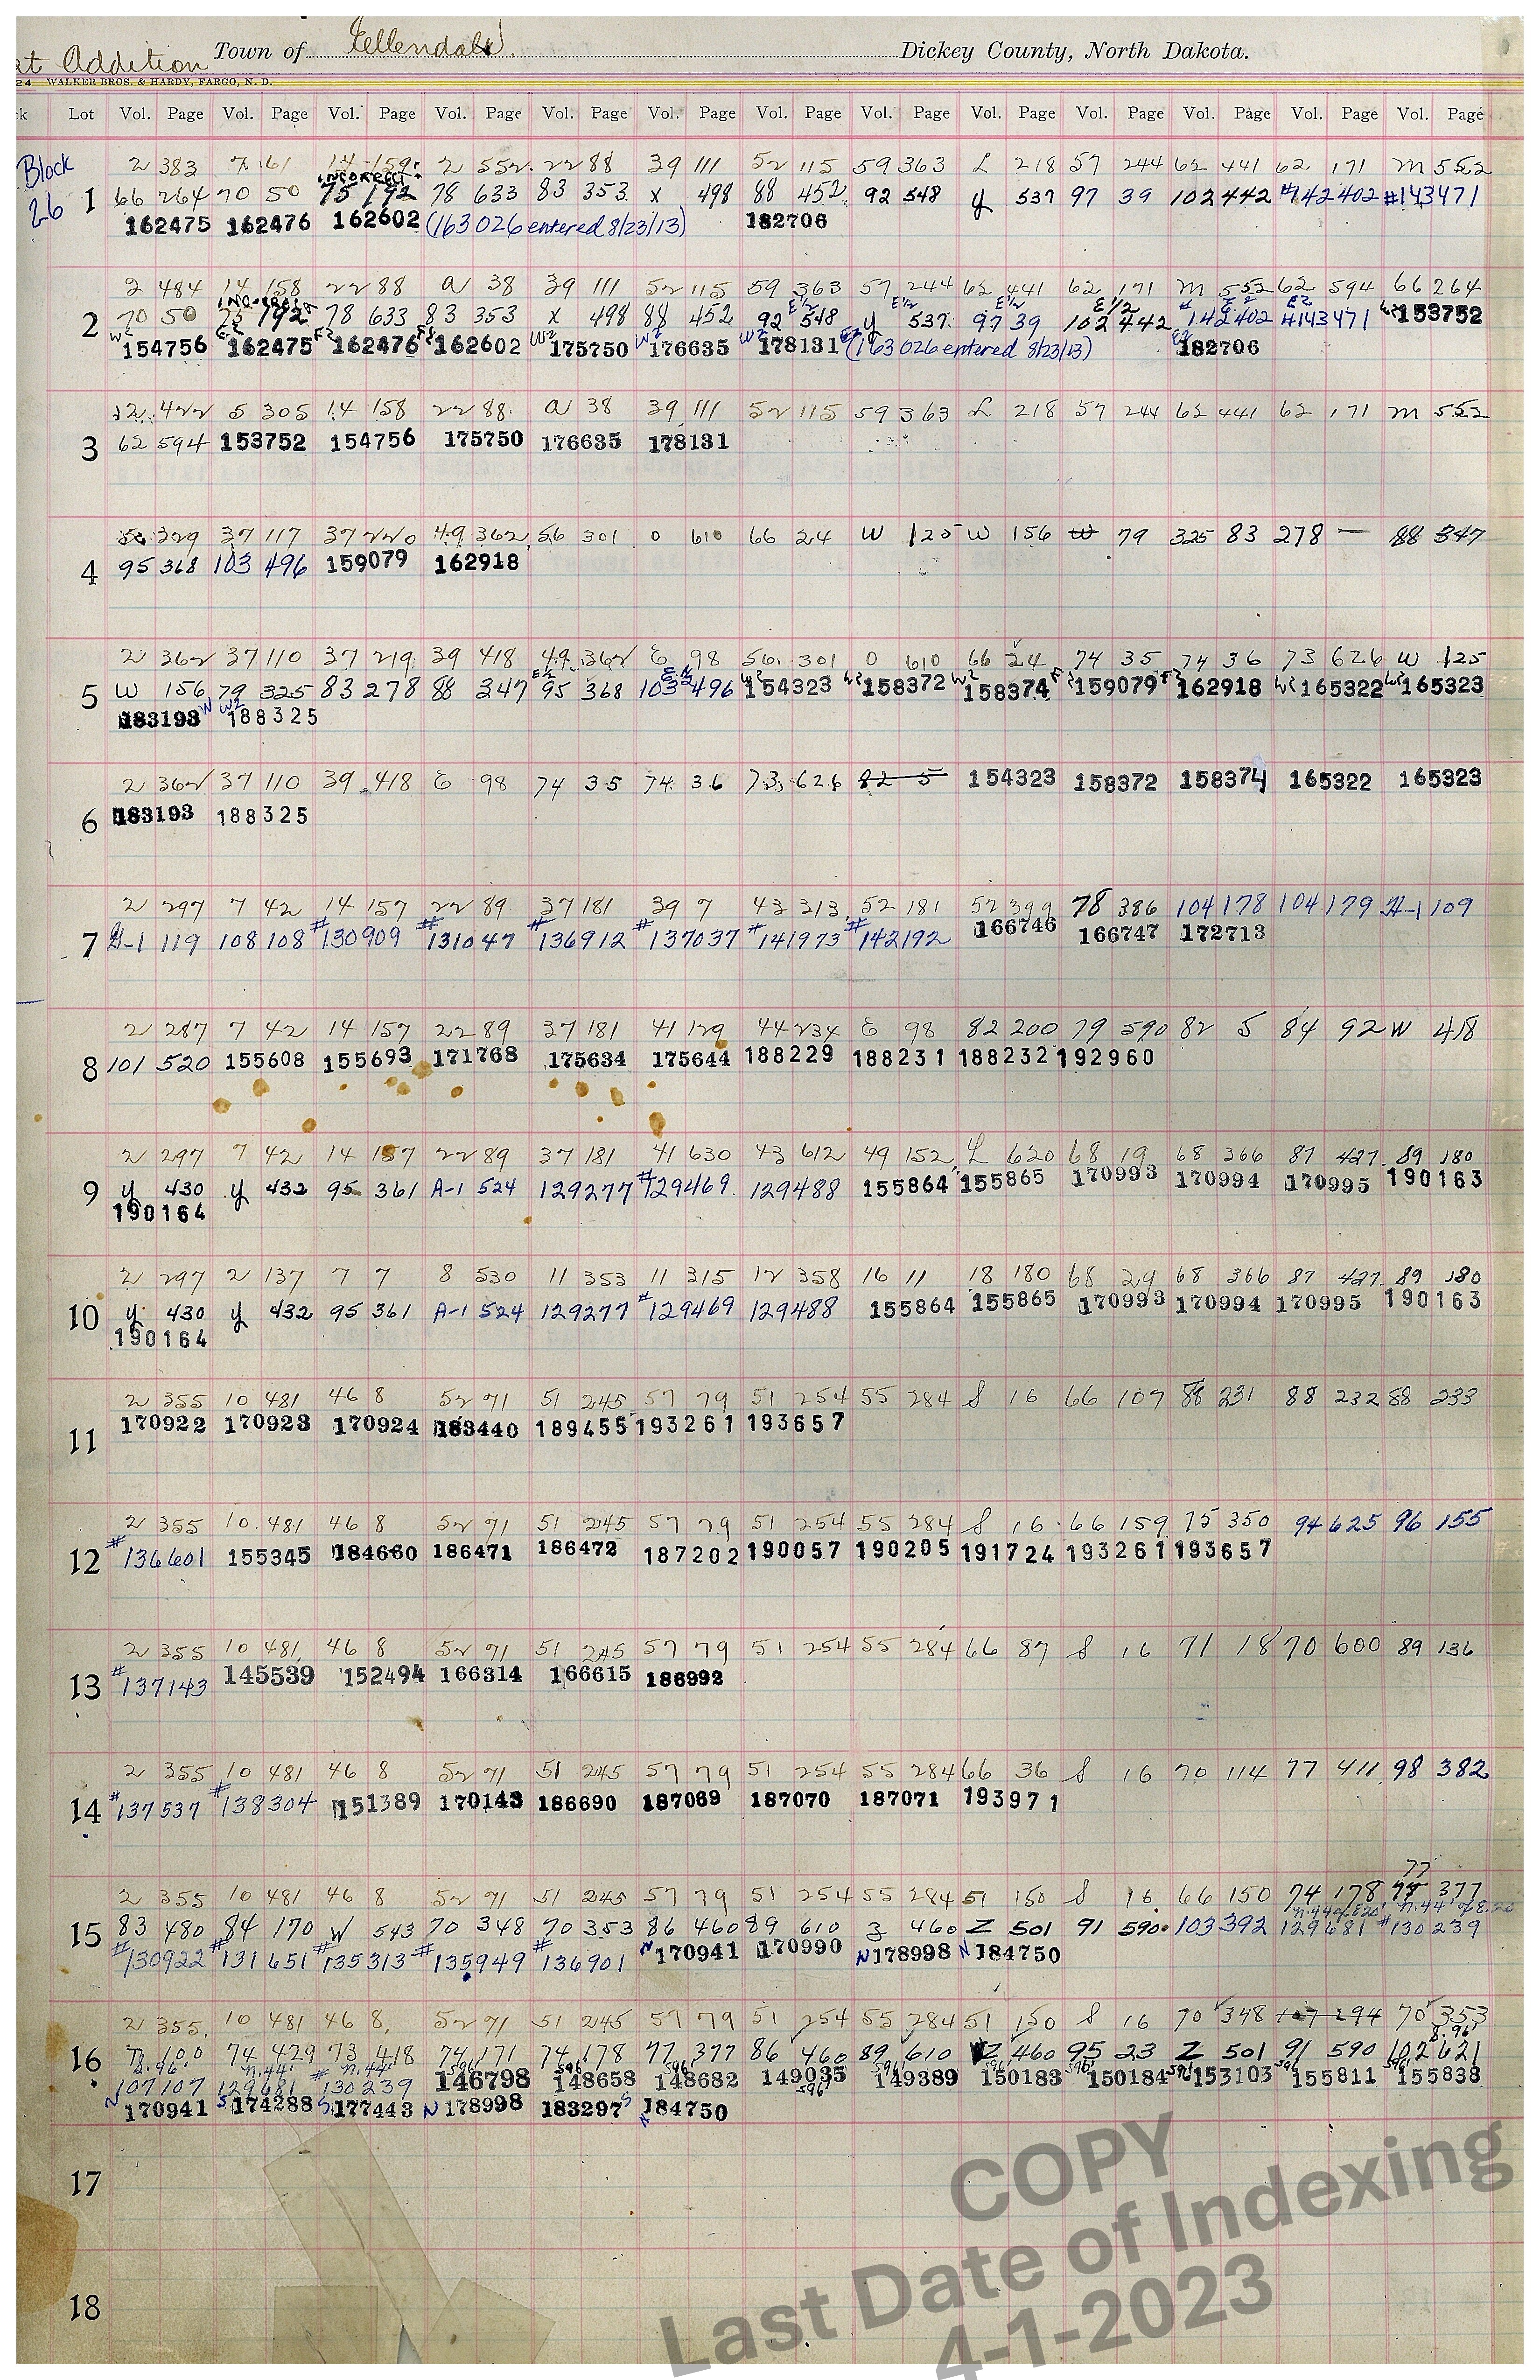 at Addition Town of Ellendale. Dickey County, North Dakota.
24 WALKER BROS. & HARDY, FARGO, N. D.
ck Lot Vol. Page Vol. Page Vol. Page Vol. Page Vol. Page Vol. Page Vol. Page Vol. Page Vol. Page Vol. Page Vol. Page Vol. Page Vol. Page
Block 2 383 7 61 14 159 2 552 22 88 39 111 52 115 59 363 L 218 57 244 62 441 62 171 M 552
incorrect
26 1 66 264 70 50 75 192 78 633 83 353 x 498 88 452 92 548 y 537 97 39 102 442 #142402 #143471
162475 162476 162602 (163026 entered 8/23/13) 182706
2 484 14 158 22 88 a 38 39 111 52 115 59 363 57 244 62 441 62 171 M 552 62 594 66 264
incorrect E1/2 E1/2 E1/2 E1/2 E2 E2
2 70 50 75 192 78 633 83 353 x 498 88 452 92 548 y 537 97 39 102 442 142402 #143471 W2 153752
W2 154756 E2 162475 E2 162476 E2 162602 W2 175750 W2 176635 W2 178131 E2 (163026 entered 8/23/13) E2 182706
2 422 5 305 14 158 22 88 a 38 39 111 52 115 59 363 L 218 57 244 62 441 62 171 M 552
3 62 594 153752 154756 175750 176635 178131
329 37 117 37 220 49 362 56 301 0 610 66 24 W 125 W 156 W 79 325 83 278 — 88 347
4 95 368 103 496 159079 162918
2 362 37 110 37 219 39 418 49 362 E 98 56 301 0 610 66 24 74 35 74 36 73 626 W 125
5 W 156 79 325 83 278 88 347 E1/2 95 368 E1/2 103 496 W2 154323 W2 158372 W2 158374 E2 159079 E2 162918 W2 165322 W2 165323
183193 W W2 188325
2 362 37 110 39 418 E 98 74 35 74 36 73 626 82 5 154323 158372 158374 165322 165323
6 183193 188325
2 297 7 42 14 157 22 89 37 181 39 7 43 313 52 181 52 399 78 386 104 178 104 179 H-1 109
7 H-1 119 108 108 #130909 #131047 #136912 #137037 #141973 #142192 166746 166747 172713
2 287 7 42 14 157 22 89 37 181 41 129 44 234 E 98 82 200 79 590 82 5 84 92 W 418
8 101 520 155608 155693 171768 175634 175644 188229 188231 188232 192960
2 297 7 42 14 157 22 89 37 181 41 630 43 612 49 152 L 620 68 19 68 366 87 427 89 180
9 y 430 y 432 95 361 A-1 524 129277 #129469 129488 155864 155865 170993 170994 170995 190163
190164
2 297 2 137 7 7 8 530 11 353 11 315 12 358 16 11 18 180 68 29 68 366 87 427 89 180
10 y 430 y 432 95 361 A-1 524 129277 #129469 129488 155864 155865 170993 170994 170995 190163
190164
2 355 10 481 46 8 52 71 51 245 57 79 51 254 55 284 S 16 66 107 88 231 88 232 88 233
11 170922 170923 170924 183440 189455 193261 193657
2 355 10 481 46 8 52 71 51 245 57 79 51 254 55 284 S 16 66 159 75 350 94 625 96 155
12 #136601 155345 184660 186471 186472 187202 190057 190205 191724 193261 193657
2 355 10 481 46 8 52 71 51 245 57 79 51 254 55 284 66 87 S 16 71 18 70 600 89 136
13 #137143 145539 152494 166314 166615 186992
2 355 10 481 46 8 52 71 51 245 57 79 51 254 55 284 66 36 S 16 70 114 77 411 98 382
14 #137537 #138304 151389 170143 186690 187069 187070 187071 193971
77
2 355 10 481 46 8 52 71 51 245 57 79 51 254 55 284 51 150 S 16 66 150 74 178 77 377
15 83 480 84 170 W 543 70 348 70 353 86 460 89 610 z 460 Z 501 91 590 103 392 129681 #130239
#130922 #131651 #135313 #135949 #136901 N 170941 170990 N 178998 N 184750
2 355 10 481 46 8 52 71 51 245 57 79 51 254 55 284 51 150 S 16 70 348 107 294 70 353
16 100 74 429 73 418 74 171 74 178 77 377 86 460 89 610 Z 460 95 23 Z 501 91 590 102 621
107 107 129681 #130239 146798 148658 148682 149035 149389 150183 150184 153103 155811 155838
N 170941 S 174288 S 177443 N 178998 183297 S N 184750
17
18
COPY
Last Date of Indexing
4-1-2023